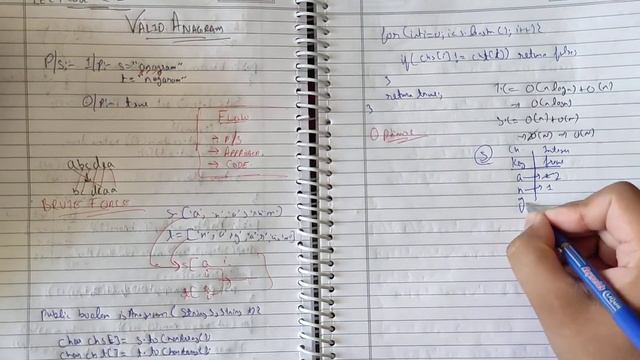 VALID ANAGRAM
P/S:- I/P:- s="anagram"
t="nagaram"
O/P:- true
FLOW
→ P/S
→ APPROACH
→ CODE
BRUTE FORCE
public boolean isAnagram(String s, String t){
char chs[] = s.toCharArray();
char cht[] = t.toCharArray();
for(int i=0; i<s.length(); i++){
if(chs[i] != cht[i]) return false;
}
return true;
}
T.C = O(n logn) + O(n)
→ O(n logn)
S.C = O(n) + O(n)
→ O(n) → O(n)
Optimal
S
Ch Integer
Key freq
a → 2
n → 1
g